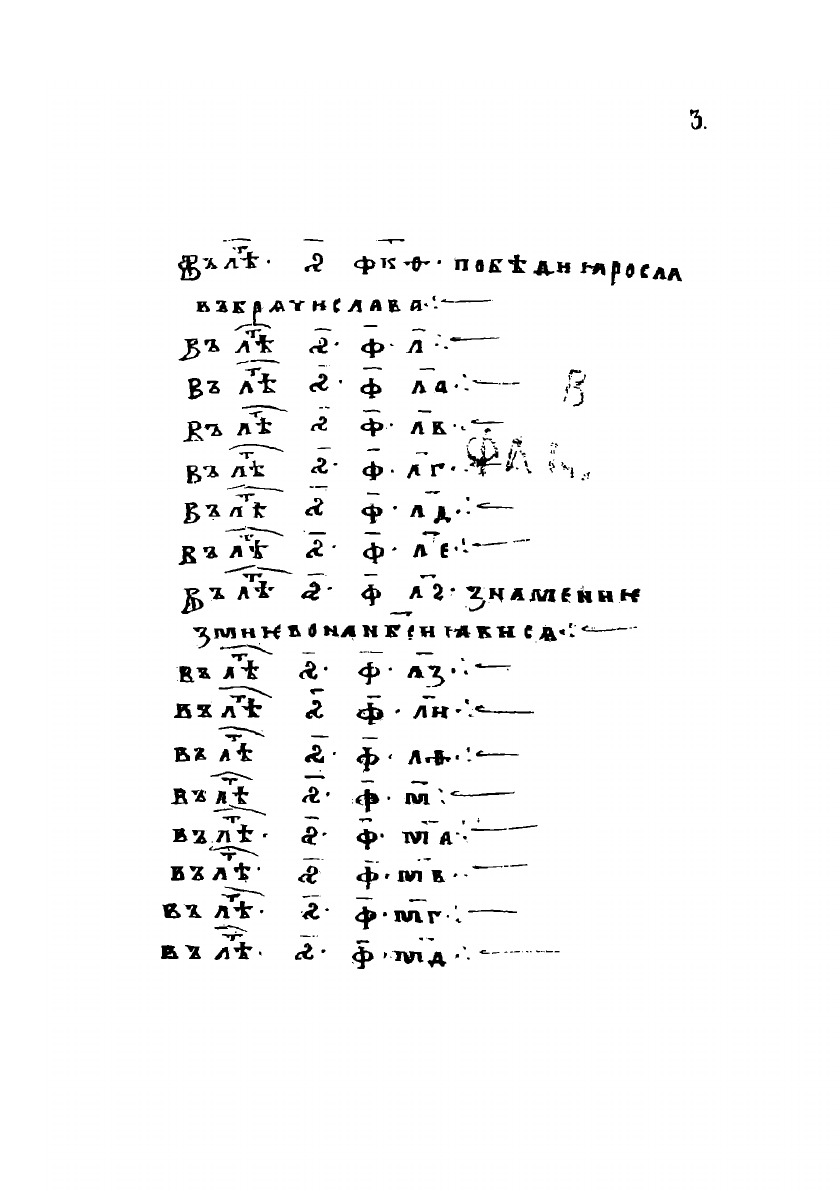 3.
Въ лѣ҃т· ѕ҃ ф҃к҃ѳ· побѣди ꙗросла
въ брачислава·:
Въ лѣ҃т ѕ҃· ф҃· л҃·:
Въ лѣ҃т ѕ҃· ф҃ л҃а·:
Въ лѣ҃т ѕ҃ ф҃· л҃в·:
Въ лѣ҃т ѕ҃· ф҃· л҃г·
Въ лѣ҃т ѕ҃ ф҃· л҃д·:
Въ лѣ҃т ѕ҃· ф҃· л҃е·:
Въ лѣ҃т ѕ҃· ф҃ л҃ѕ· знамениѥ
змиѥво на нб҃си ꙗвисѧ·:
Въ лѣ҃т ѕ҃· ф҃· л҃з·:
Въ лѣ҃т ѕ҃ ф҃· л҃и·:
Въ лѣ҃т ѕ҃· ф҃· л҃ѳ·:
Въ лѣ҃т ѕ҃· ф҃· м҃:
Въ лѣ҃т· ѕ҃· ф҃· м҃а·:
Въ лѣ҃т· ѕ҃ ф҃· м҃в··
Въ лѣ҃т· ѕ҃· ф҃· м҃г·:
Въ лѣ҃т· ѕ҃· ф҃· м҃д·: